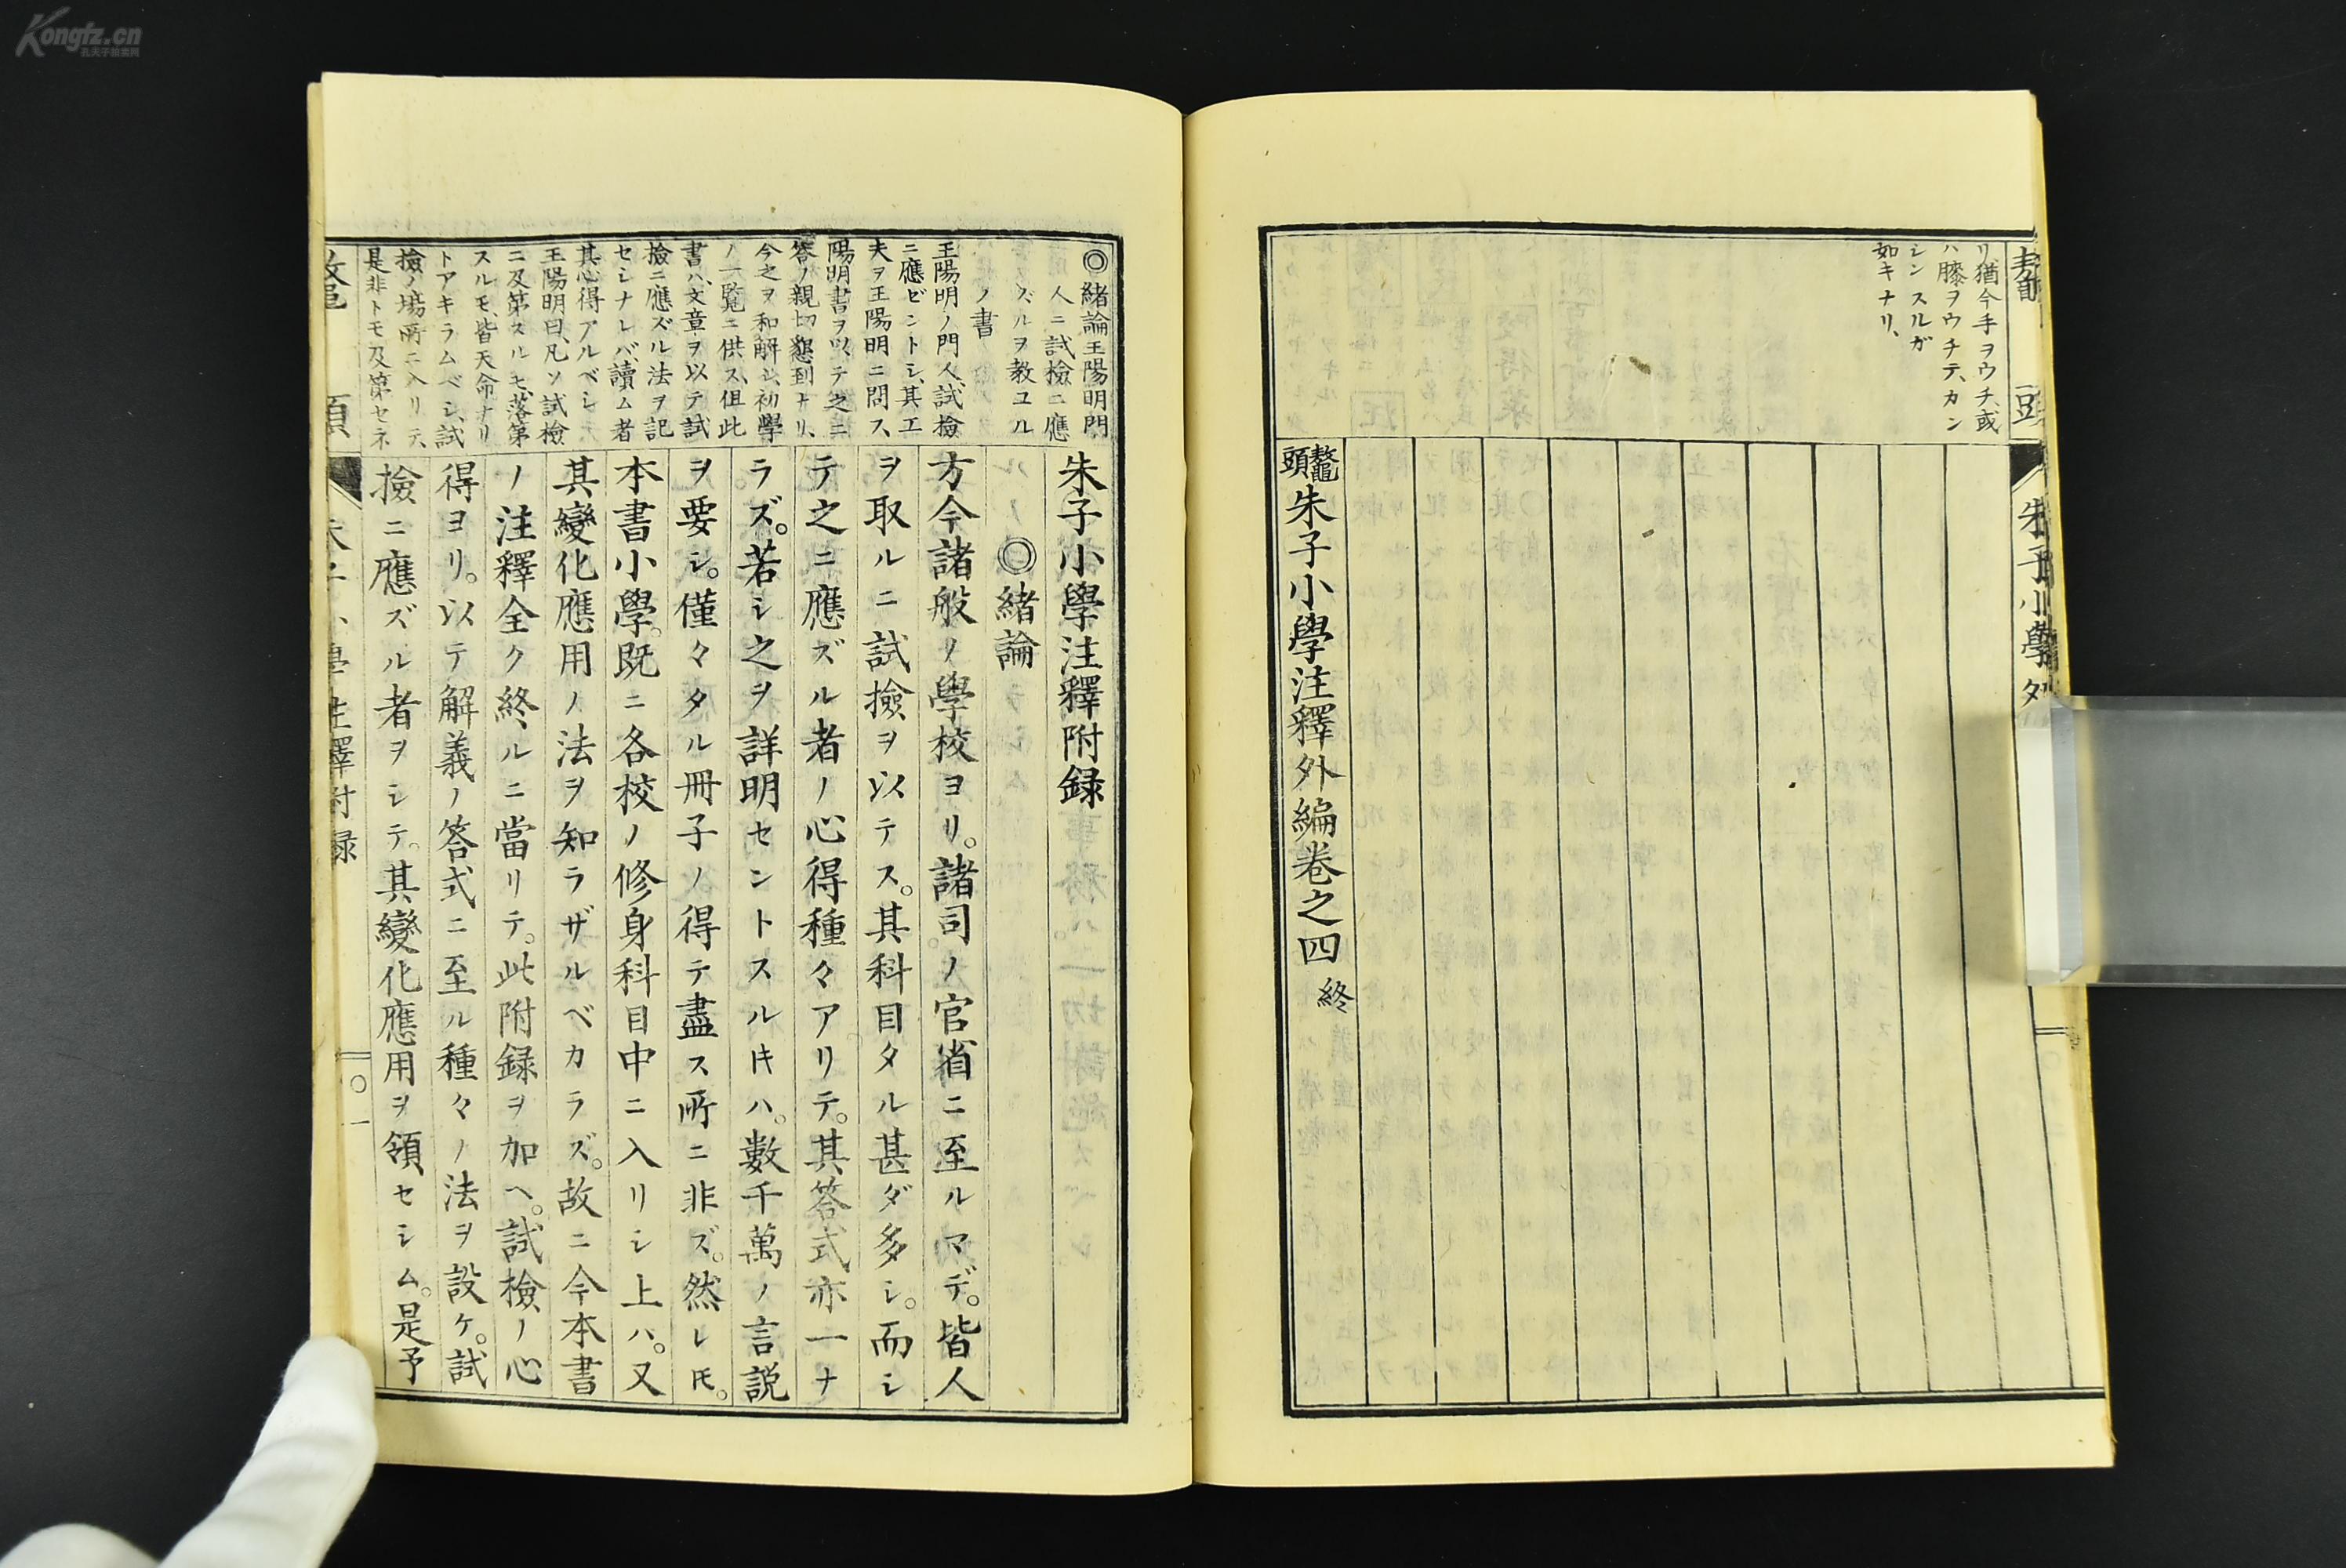 リ、猶今手ヲウチ、或
ハ膝ヲウチテ、カン
シンスルガ
如キナリ、
鼇頭朱子小學注釋外編卷之四 終
朱子小學外
◎緒論王陽明門
人ニ試檢ニ應
ズルヲ教ユル
ノ書
王陽明ノ門人、試檢
ニ應ゼントシ、其工
夫ヲ王陽明ニ問ス、
陽明書ヲ以テ之ニ
答ノ親切懇到ナリ、
今之ヲ和解シ、初學
ノ一覧ニ供ス、但此
書ハ、文章ヲ以テ試
檢ニ應ズル法ヲ記
セシナレバ、讀ム者
其心得アルベシ
王陽明曰、凡ソ試檢
ニ及第スルモ、落第
スルモ、皆天命ナリ
トアキラムベシ、試
檢ノ場所ニ入リテ、
是非トモ及第セネ
朱子小學注釋附録
◎緒論
方今諸般ノ學校ヨリ。諸司ノ官省ニ至ルマデ。皆人
ヲ取ルニ試檢ヲ以テス。其科目タル甚ダ多シ。而シ
テ之ニ應ズル者ノ心得種々アリテ。其答式亦一ナ
ラズ。若シ之ヲ詳明セントスルキハ。數千萬ノ言説
ヲ要シ。僅々タル冊子ノ得テ盡ス所ニ非ズ。然レ𪜈。
本書小學。既ニ各校ノ修身科目中ニ入リシ上ハ。又
其變化應用ノ法ヲ知ラザルベカラズ。故ニ今本書
ノ注釋全ク終ルニ當リテ。此附録ヲ加ヘ。試檢ノ心
得ヨリ。以テ解義ノ答式ニ至ル種々ノ法ヲ設ケ。試
檢ニ應ズル者ヲシテ。其變化應用ヲ領セシム。是予
〇一
Kongfz.cn
孔夫子拍卖网